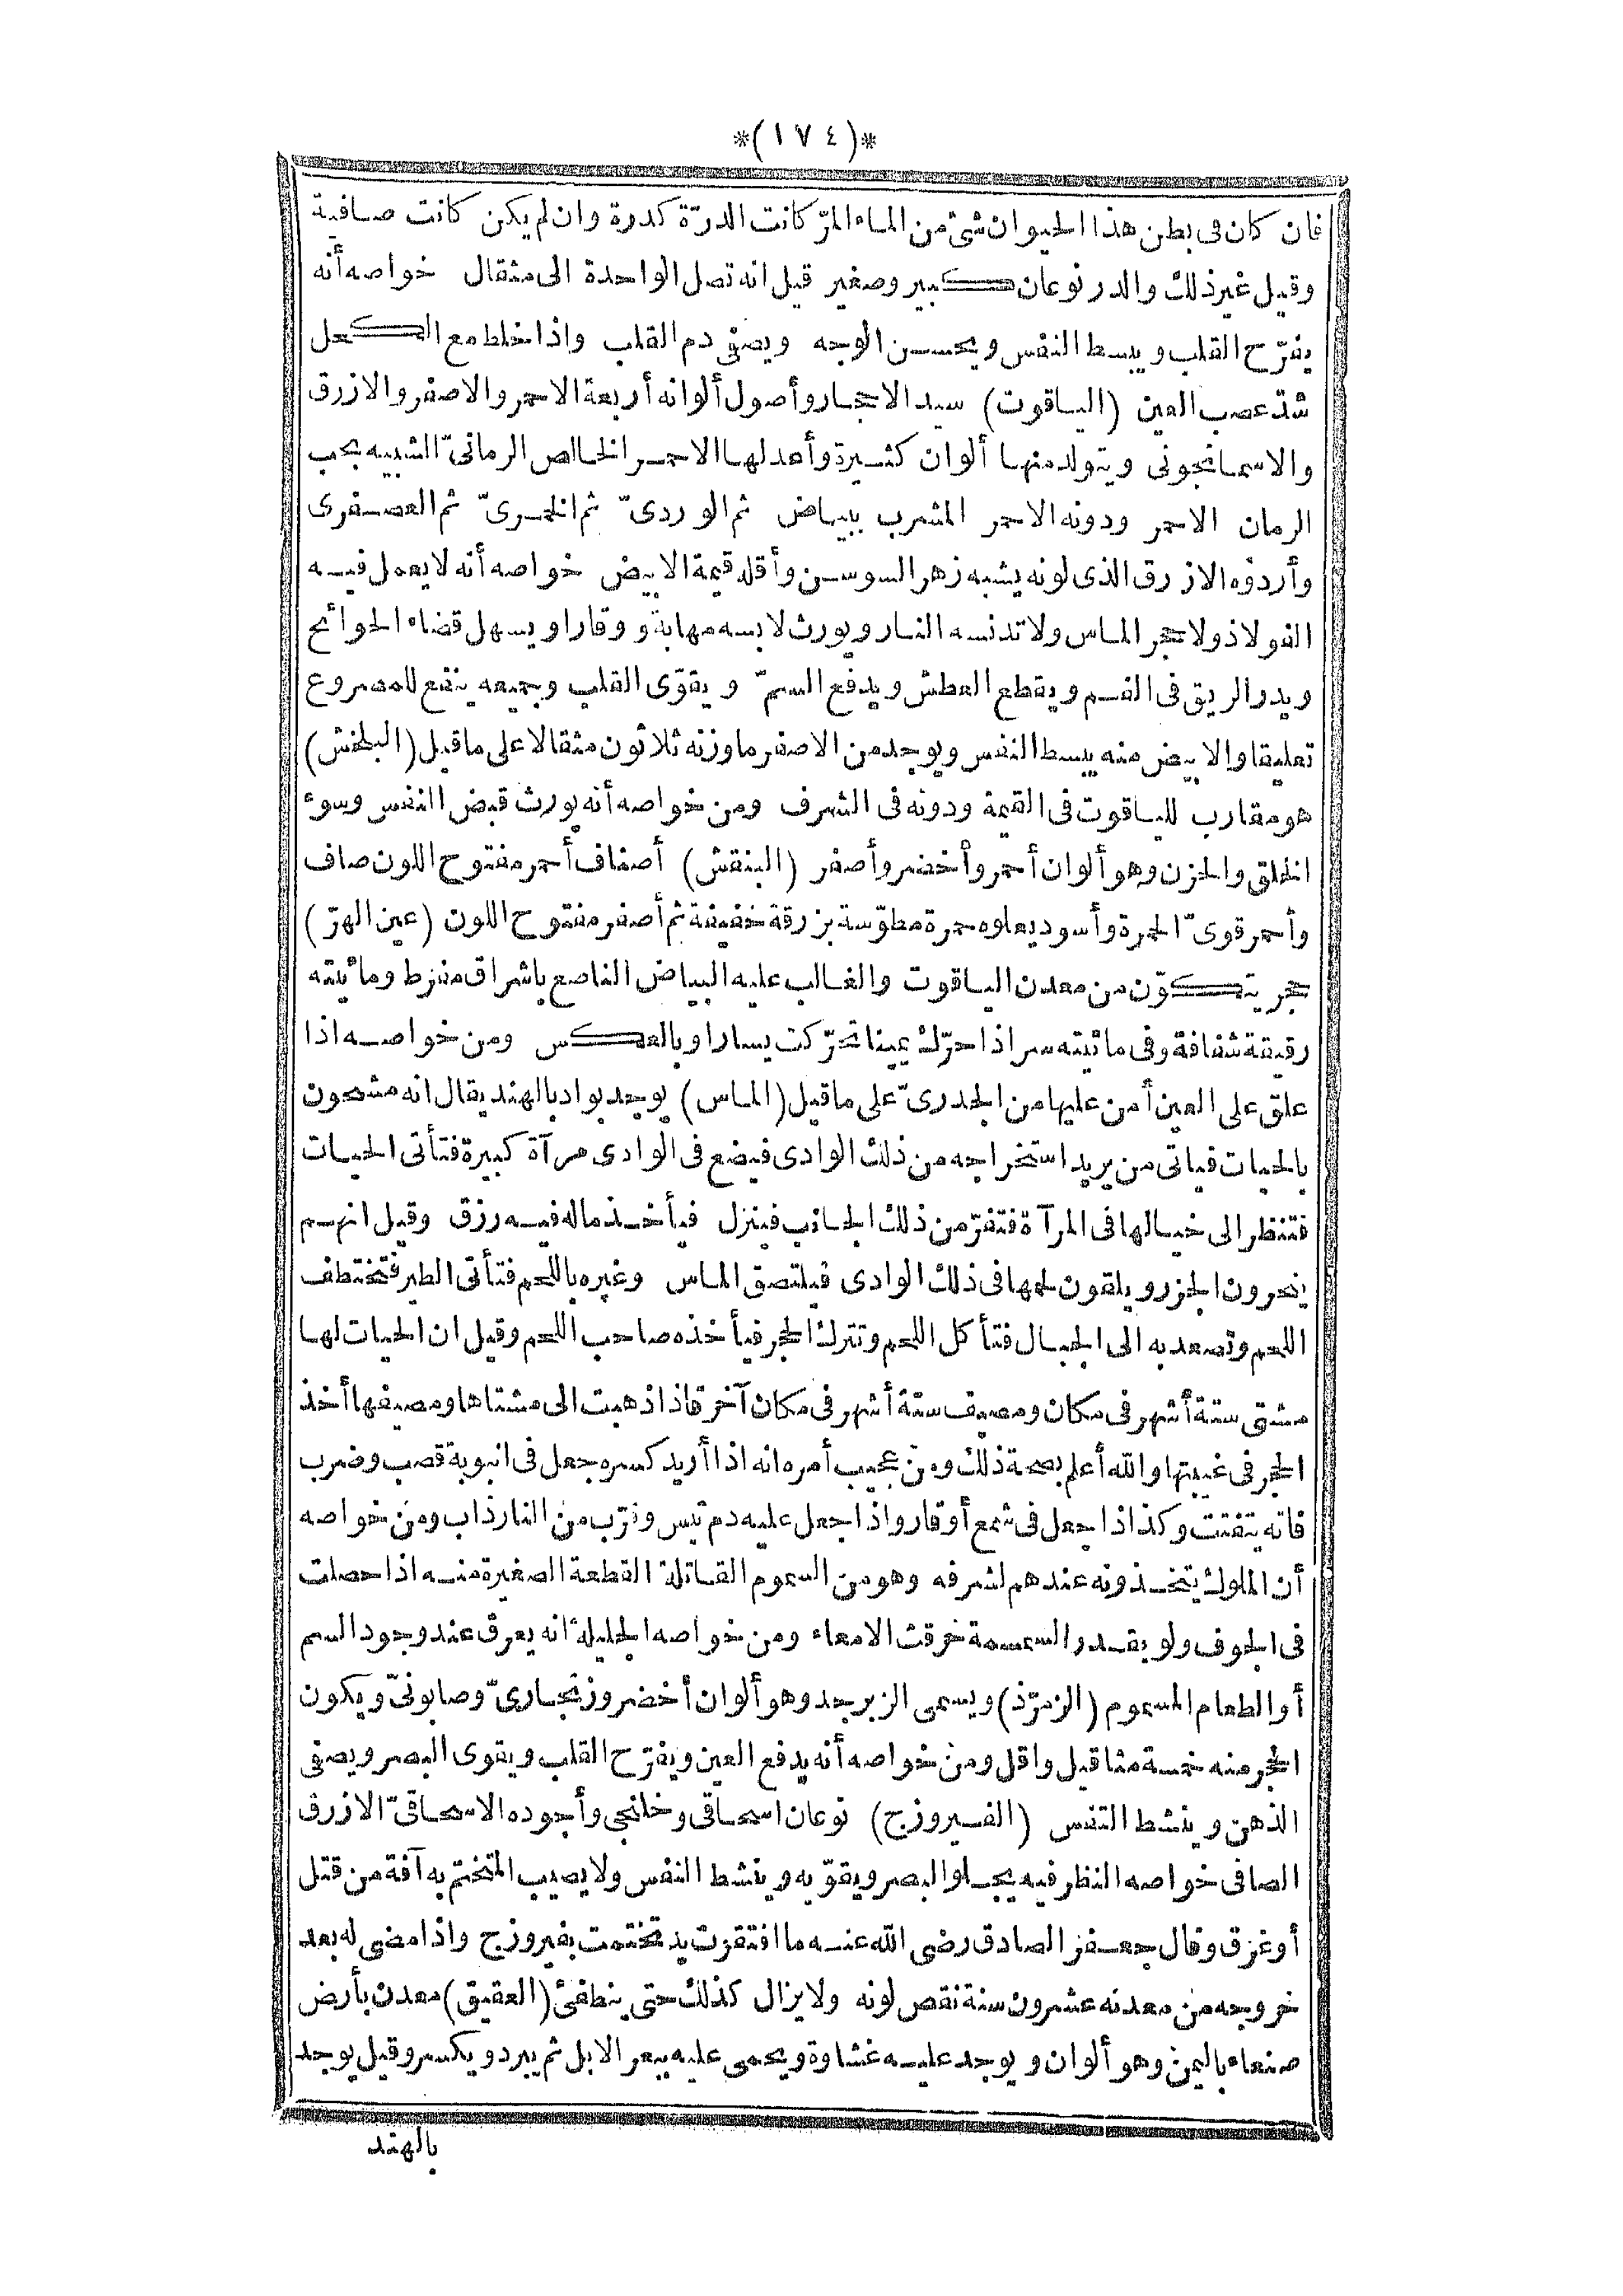 *(١٧٤)*
فان كان فى بطن هذا الحيوان شئ من الماء المرّ كانت الدرّة كدرة وان لم يكن كانت صافية
وقيل غير ذلك والدر نوعان كبير وصغير قيل انه تصل الواحدة الى مثقال خواصه أنه
يفرّح القلب ويبسط النفس ويحسن الوجه ويصفى دم القلب واذا خلط مع الكحل
شدّ عصب العين (الياقوت) سيد الاحجار وأصول ألوانه أربعة الاحمر والاصفر والازرق
والاسمانجونى ويتولد منها ألوان كثيرة وأعدلها الاحمر الخالص الرمانىّ الشبيه بحب
الرمان الاحمر ودونه الاحمر المشرب ببياض ثم الوردىّ ثم الخمرىّ ثم العصفرى
وأردؤه الازرق الذى لونه يشبه زهر السوسن وأقله قيمة الابيض خواصه أنه لا يعمل فيه
الفولاذ ولا حجر الماس ولا تدنسه النار ويورث لابسه مهابة ووقارا ويسهل قضاء الحوائج
ويدر الريق فى الفم ويقطع العطش ويدفع السمّ ويقوّى القلب وجميعه ينفع للمصروع
تعليقا والابيض منه يبسط النفس ويوجد من الاصفر ما وزنه ثلاثون مثقالا على ما قيل (البلخش)
هو مقارب للياقوت فى القيمة ودونه فى الشرف ومن خواصه أنه يورث قبض النفس وسوء
الخلق والحزن وهو ألوان أحمر وأخضر وأصفر (البنفش) أصناف أحمر مفتوح اللون صاف
وأحمر قوىّ الحمرة وأسود يعلوه حمرة مطوّسة بزرقة خفيفة ثم أصفر مفتوح اللون (عين الهرّ)
حجر يتكوّن من معدن الياقوت والغالب عليه البياض الناصع باشراق مفرط ومائيته
رقيقة شفافة وفى مائيته سر اذا حرّك يمينا تحرّكت يسارا وبالعكس ومن خواصه اذا
علق على العين أمن عليها من الجدرىّ على ما قيل (الماس) يوجد بواد بالهند يقال انه مشحون
بالحيات فياتى من يريد استخراجه من ذلك الوادى فيضع فى الوادى مرآة كبيرة فتأتى الحيات
فتنظر الى خيالها فى المرآة فتفرّ من ذلك الجانب فينزل فيأخذ ماله فيه رزق وقيل انهم
ينحرون الجزر ويلقون لحمها فى ذلك الوادى فيلتصق الماس وغيره باللحم فتأتى الطير فتختطف
اللحم وتصعد به الى الجبال فتأكل اللحم وتترك الحجر فيأخذه صاحب اللحم وقيل ان الحيات لها
مشتى ستة أشهر فى مكان ومصيف ستة أشهر فى مكان آخر فاذا ذهبت الى مشتاها ومصيفها أخذ
الحجر فى غيبتها والله أعلم بصحة ذلك ومن عجيب أمره انه اذا أريد كسره جعل فى انبوبة قصب وضرب
فانه يتفتت وكذا اذا جعل فى شمع أو قار واذا جعل عليه دم تيس وقرّب من النار ذاب ومن خواصه
أن الملوك يتخذونه عندهم لشرفه وهو من السموم القاتلة القطعة الصغيرة منه اذا حصلت
فى الجوف ولو بقدر السمسمة خرقت الامعاء ومن خواصه الجليلة انه يعرق عند وجود السم
أو الطعام المسموم (الزمرّذ) ويسمى الزبرجد وهو ألوان أخضر وزنجارىّ وصابونىّ ويكون
الحجر منه خمسة مثاقيل واقل ومن خواصه أنه يدفع العين ويفرّح القلب ويقوى البصر ويصفى
الذهن وينشط النفس (الفيروزج) نوعان اسحاقى وخلنجى وأجوده الاسحاقىّ الازرق
الصافى خواصه النظر فيه يجلو البصر ويقوّيه وينشط النفس ولا يصيب المتختم به آفة من قتل
أو غرق وقال جعفر الصادق رضى الله عنه ما افتقرت يد تختمت بفيروزج واذا مضى له بعد
خروجه من معدنه عشرون سنة نقص لونه ولا يزال كذلك حتى ينطفئ (العقيق) معدن بأرض
صنعاء باليمن وهو ألوان ويوجد عليه غشاوة ويحمى عليه ببعر الابل ثم يبرد ويكسر وقيل يوجد
بالهند